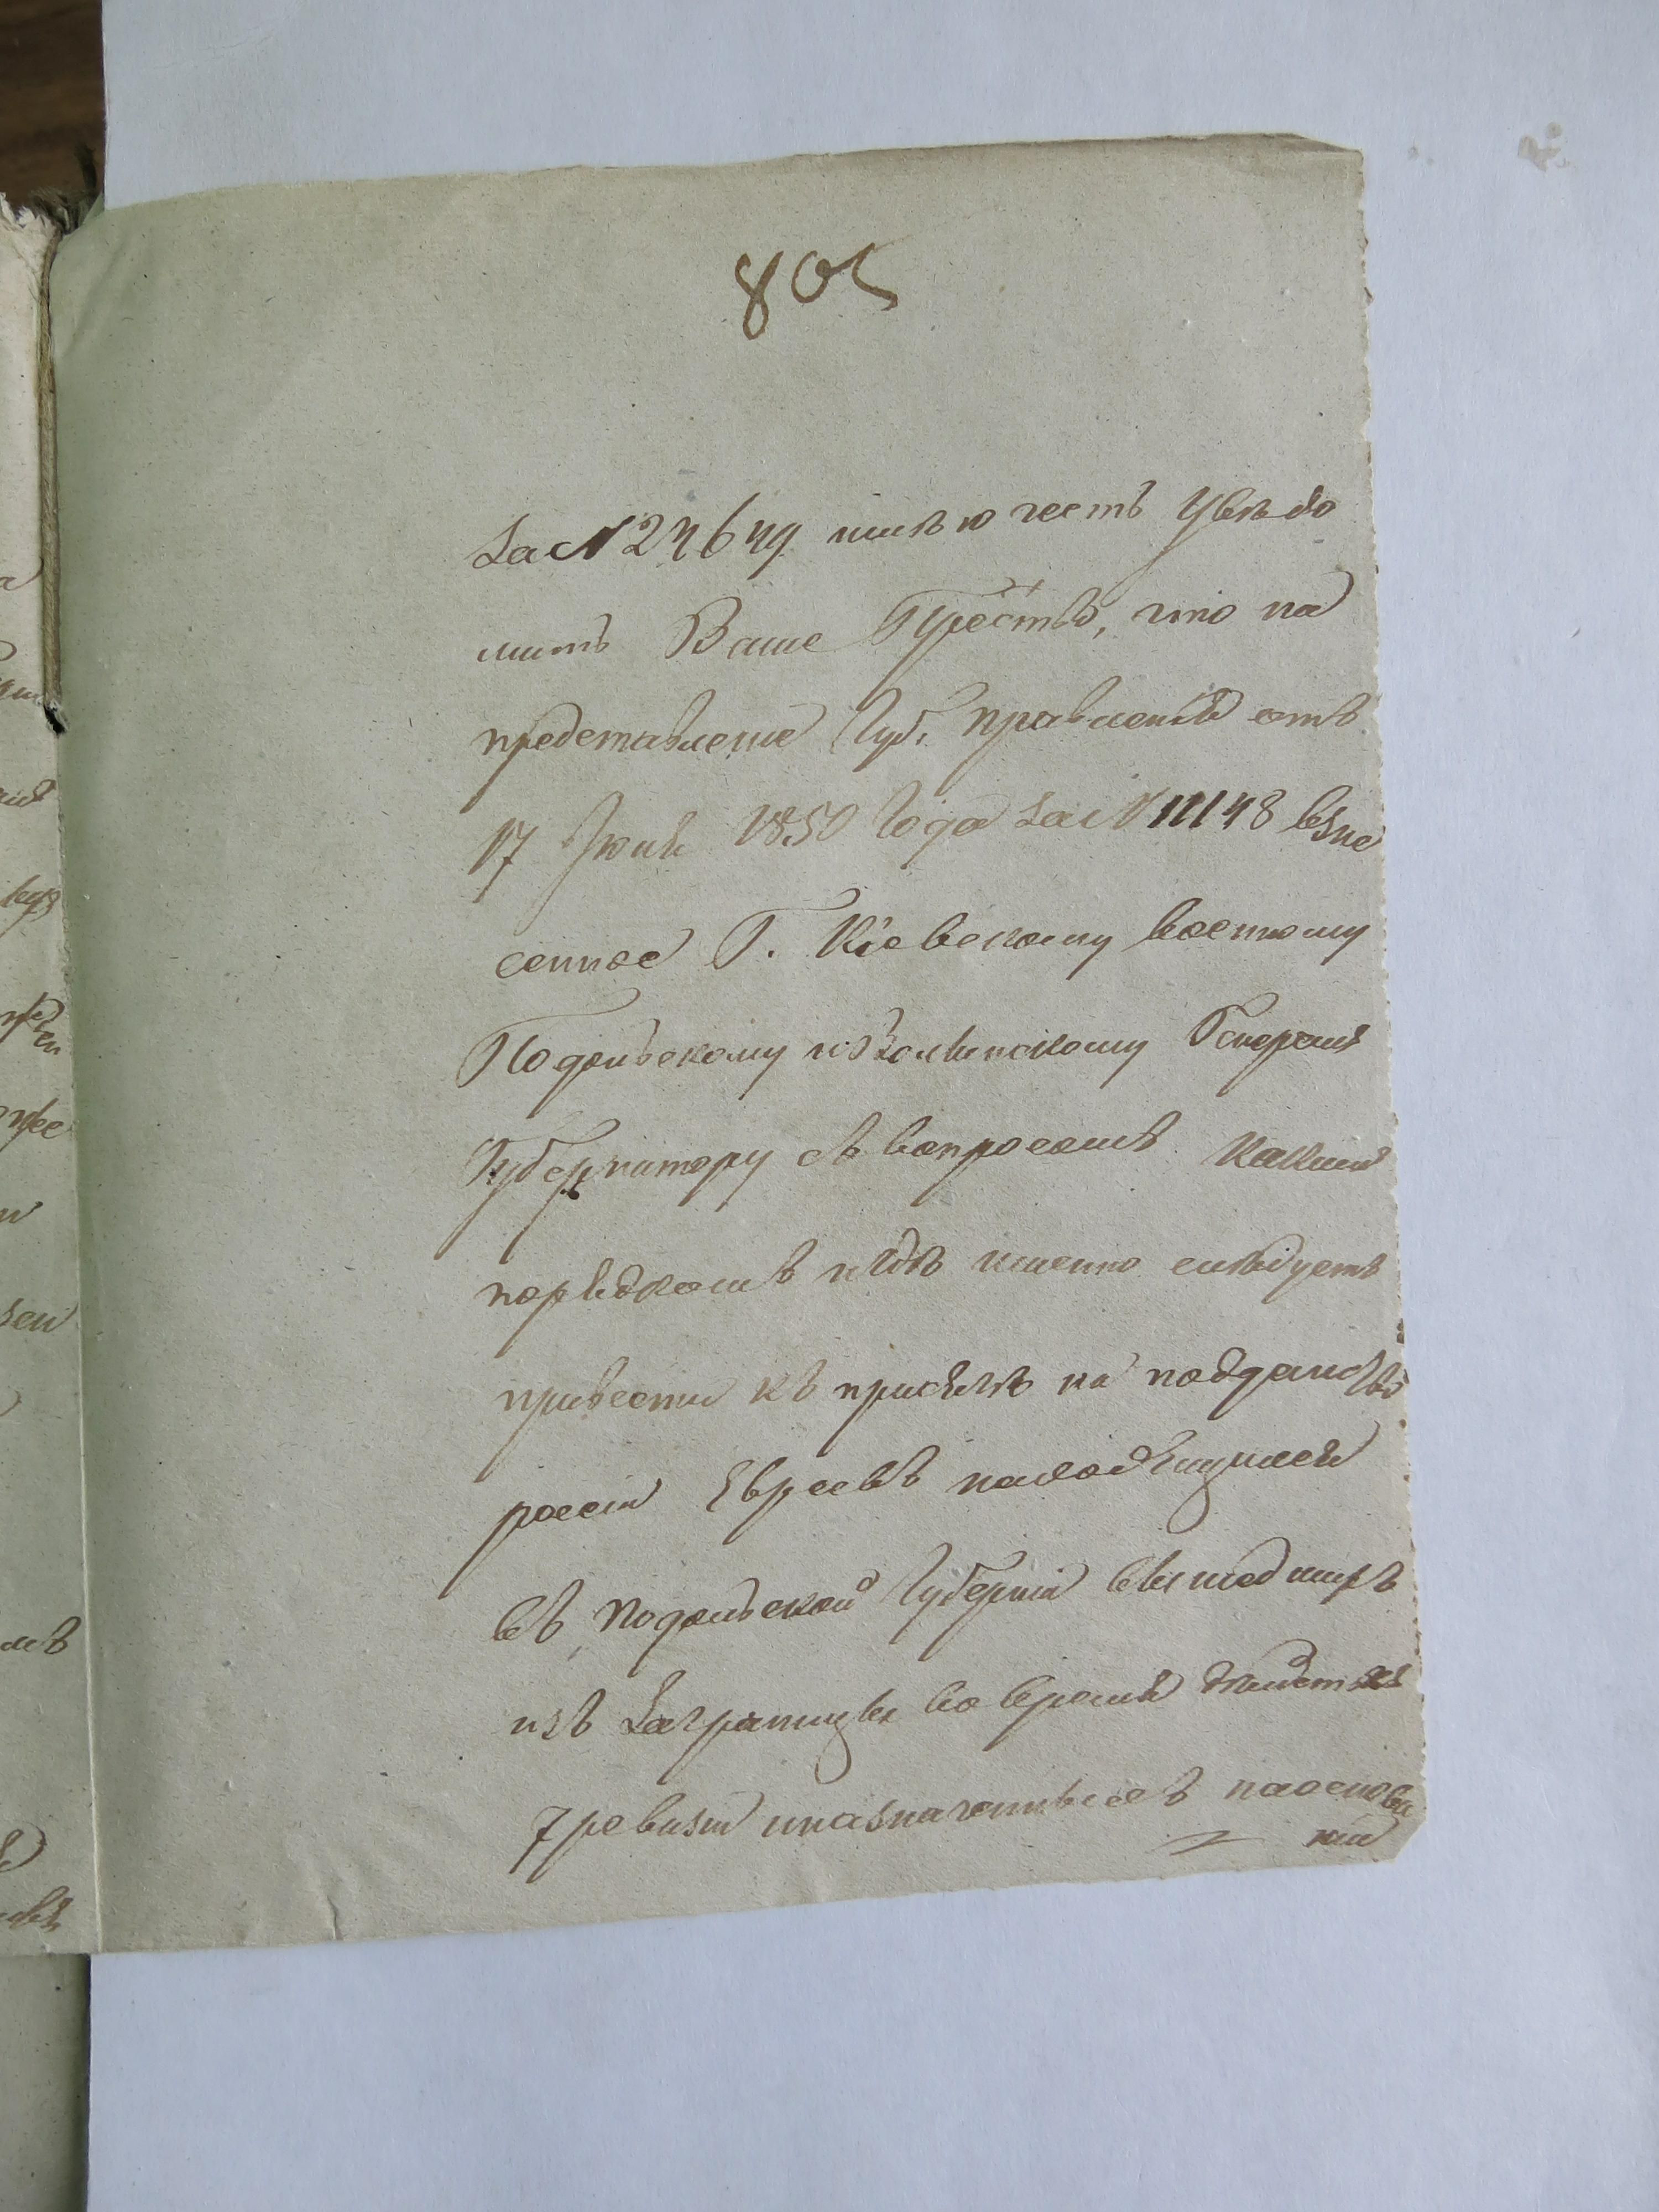 805
за № 24649 имѣю честь Увѣдо
мить Ваше Прест̃во, что на
представленіе Губ. Правленія отъ
17 Іюня 1850 года за № 11148 взне
сенное Г. Кіевскому военному
Подольскому и Волынскому Генералъ
Губернатору съ вопросомъ какимъ
порядкомъ и гдѣ именно слѣдуетъ
привести къ присягѣ на подданство
россіи Евреевъ находящихся
въ Подольской Губерніи вышедшихъ
изъ Заграницы во время
7 ревизіи на основа
ніи